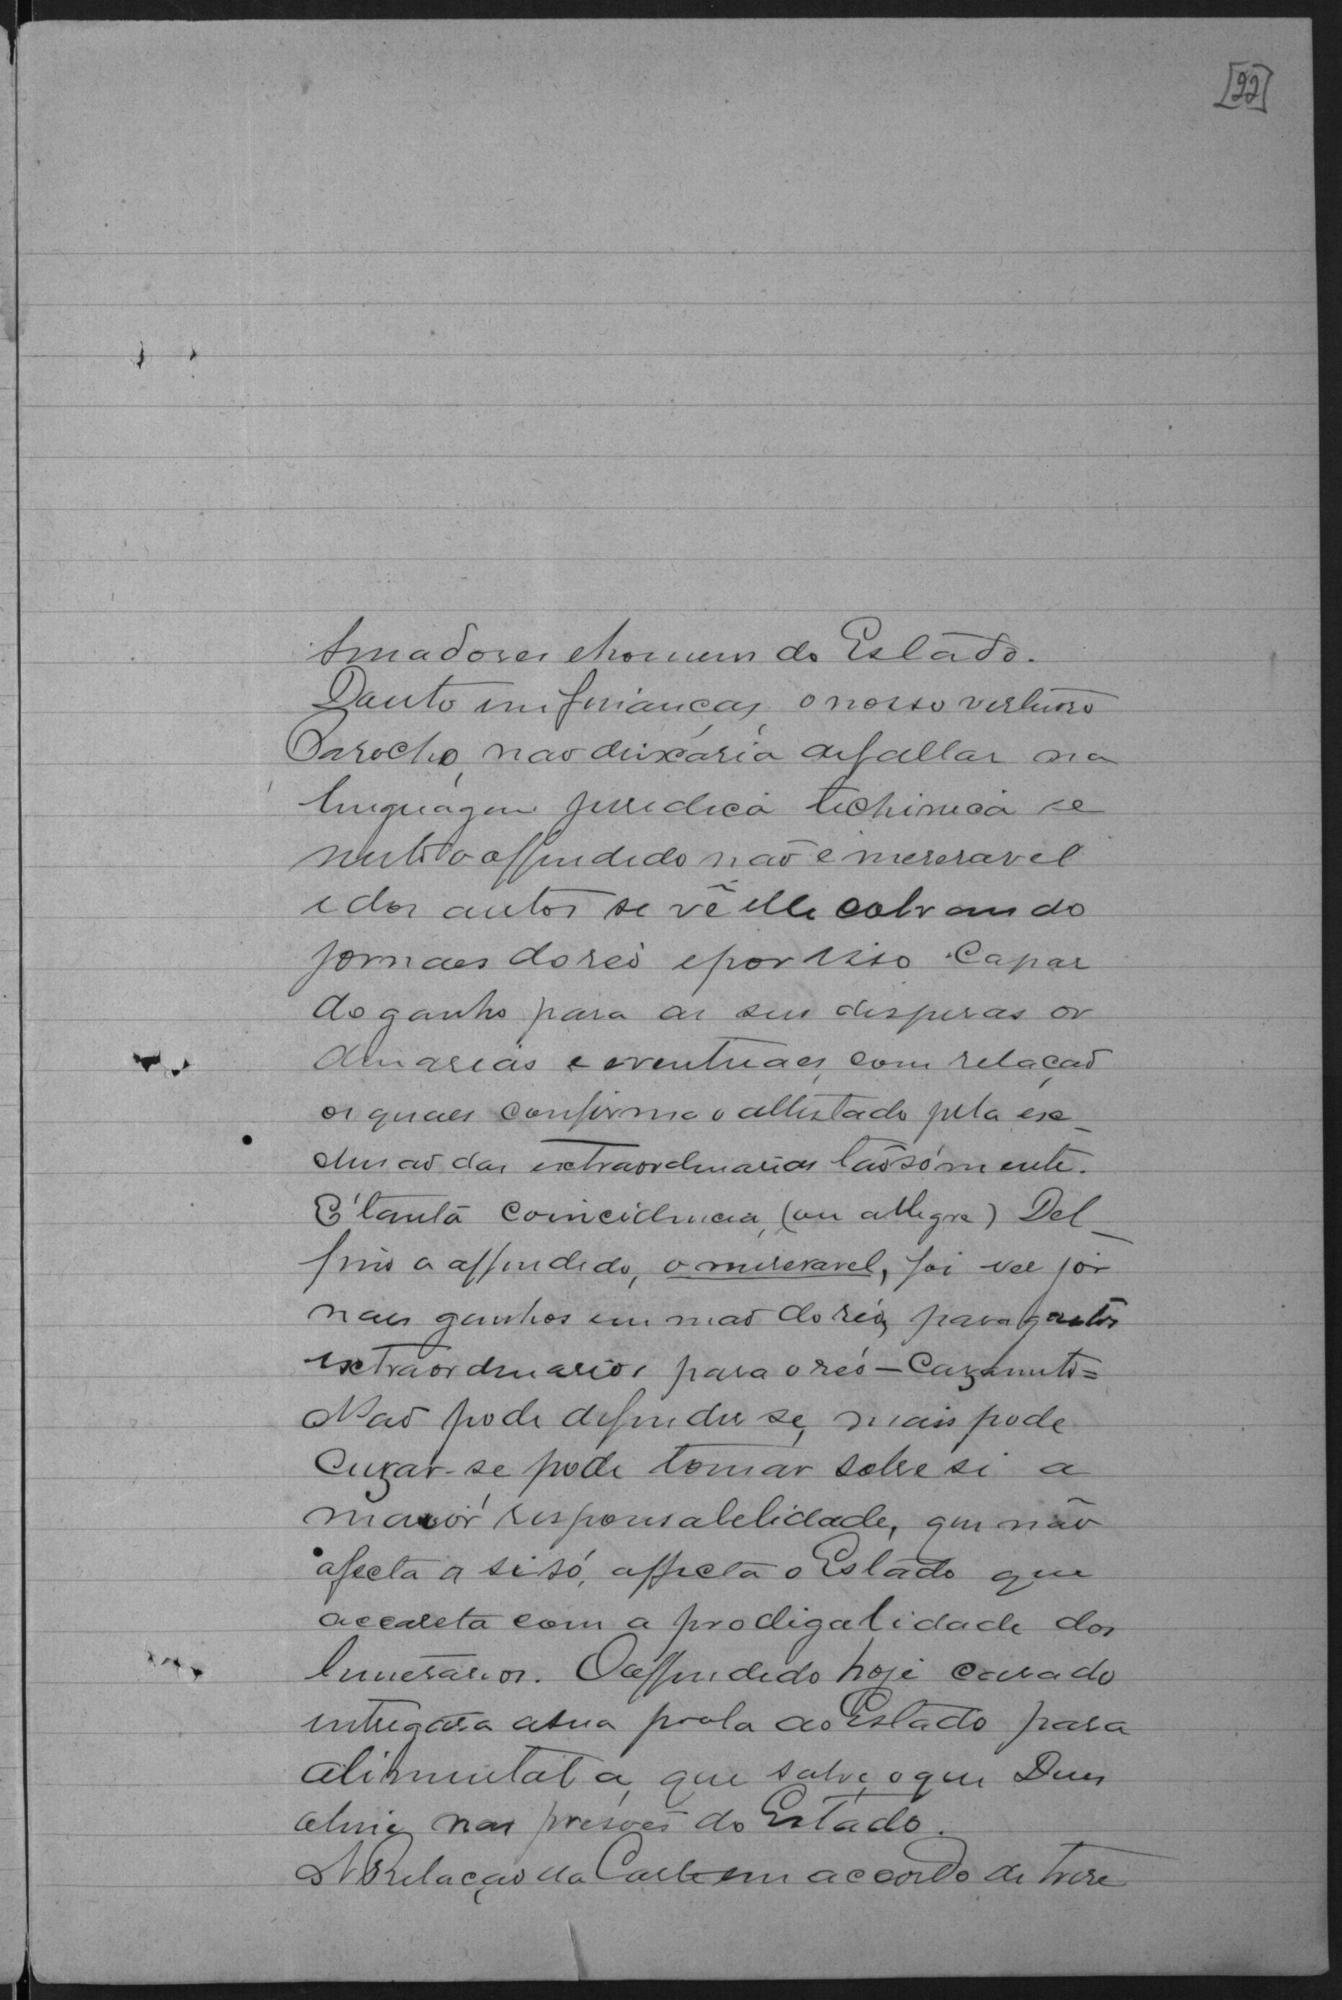 [22]
Amadores e homem do Estado.
Dauto em finanças, o nosso vertuoso
Parocho, nao deixaria de fallar na
linguágem juridica techinica se
o offendido naõ é meseravel
e dos autos se vê elle cobrando
jornaes do reó e por isso Capaz
do ganho para as suas despesas or
dinarias e eventuaes, com relaçaõ
as quaes confirma o attestado pela ex_
clusaõ das extraordinarias taõ sómente.
E' tanta Coincidencia, (ou allegre) Del_
fino o offendido, o meseravel, foi ver jor
naes ganhos em maõ do reó, para gastos
extraordinarios para o reó — Cazamento =
Naõ pode defender se, mais pode
Cuzar-se pode tomar sobre si a
maior responsabelidade, que não
afecta a si só, affecta o Estado que
accareta com a prodigalidade dos
lunerarios. O offendido hoje casado
entregara a sua prola ao Estado para
alimentala, que salve, o que Deus
nas presoẽs do Estado.
A Relaçaõ da Corte em accordo de treze